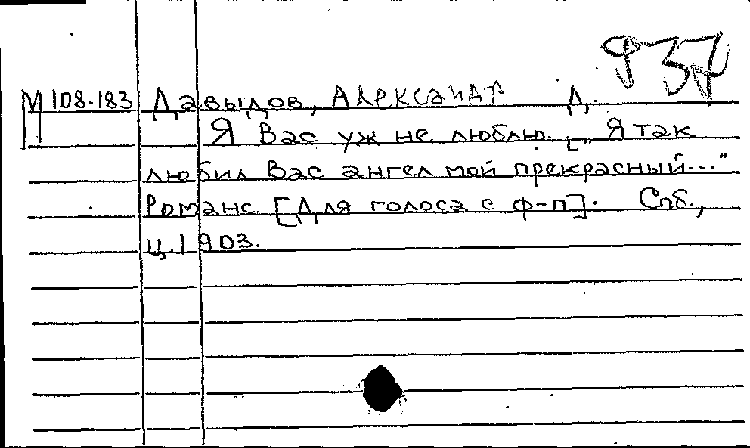 937
М 108-183 Давыдов, Александр Д.
Я Вас уж не люблю. ["Я так
любил Вас ангел мой прекрасный..."
Романс [Для голоса с ф-п]. Спб.,
ц. 1903.